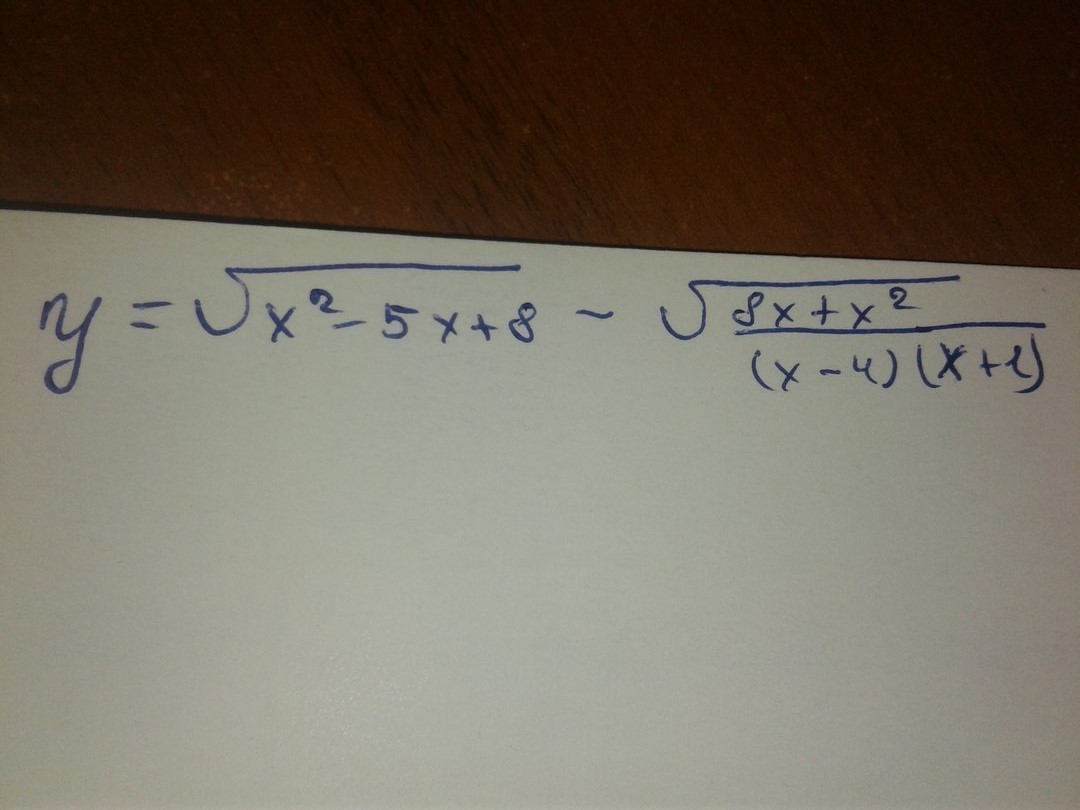 y = √(x² - 5x + 8) - √((8x + x²)/((x - 4)(x + 1)))